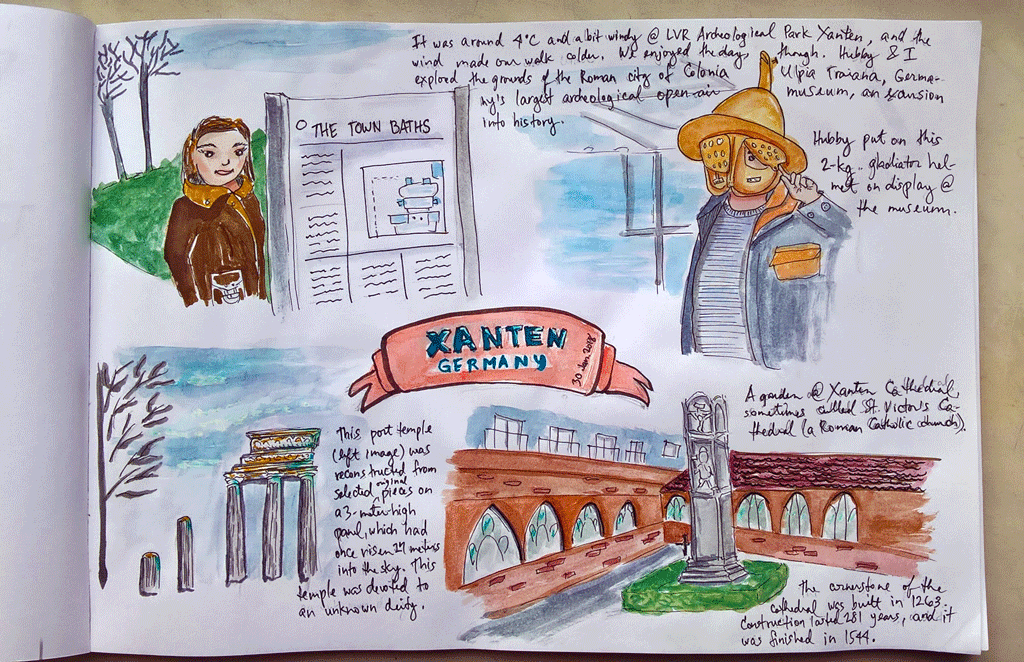 It was around 4°C and a bit windy @ LVR Archeological Park Xanten, and the
wind made our walk colder. We enjoyed the day, though. Hubby & I
explored the grounds of the Roman city of Colonia Ulpia Traiana, Germa-
ny's largest archeological open-air museum, an excursion
into history.
THE TOWN BATHS
Hubby put on this
2-kg. gladiator hel-
met on display @
the museum.
XANTEN
GERMANY
30 Jan 2018
This port temple
(left image) was
reconstructed from
selected original pieces on
a 3-meter-high
panel, which had
once risen 27 meters
into the sky. This
temple was devoted to
an unknown deity.
A garden @ Xanten Cathedral,
sometimes called St. Victor's Ca-
thedral (a Roman Catholic church).
The cornerstone of the
cathedral was built in 1263.
Construction lasted 281 years, and it
was finished in 1544.